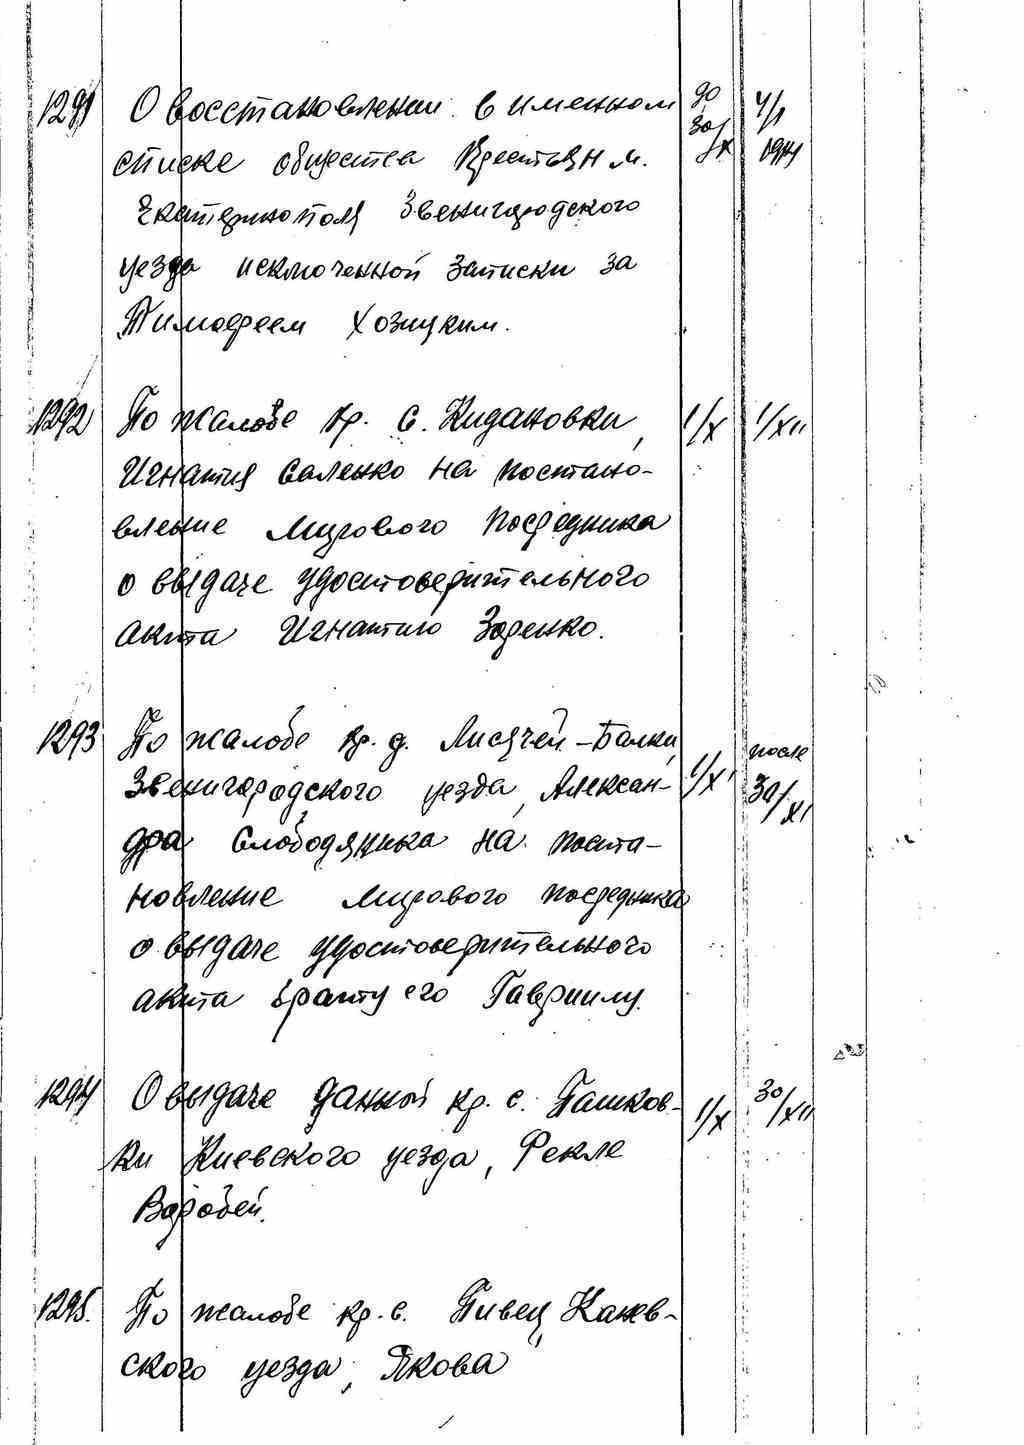 1291 О восстановлении в именном до 30/X 4/I 1914
списке общества крестьян м.
Екатеринополя Звенигородского
уезда исключенной записки за
Тимофеем Хозицким.
1292 По жалобе кр. с. Кидановки, 1/X 1/XII
Игнатия Саленко на постано-
вление Мирового Посредника
о выдаче удостоверительного
акта Игнатию Заренко.
1293 По жалобе кр. д. Лисячей-Балки, 1/XI после 30/XI
Звенигородского уезда, Алексан-
дра Слободяника на поста-
новление мирового посредника
о выдаче удостоверительного
акта брату его Гавриилу.
1294 О выдаче данной кр. с. Пашков- 1/X 30/XII
ки Киевского уезда, Фекле
Воробей.
1295. По жалобе кр. с. Пивец, Канев-
ского уезда, Якова